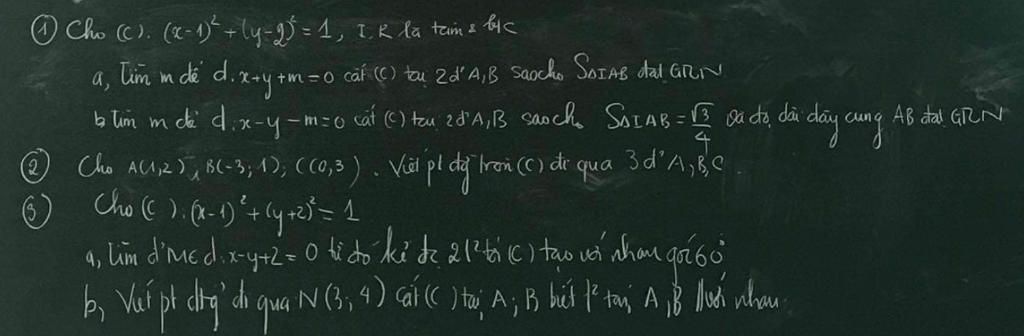 ① Cho (C): (x-1)² + (y-2)² = 1, I, R là tâm & b/c
a, Tìm m để d: x+y+m=0 cắt (C) tại 2đ' A,B sao cho S∆IAB đạt GTLN
b, Tìm m để d: x-y-m=0 cắt (C) tại 2đ' A,B sao cho S∆IAB = √3/4 và độ dài dây cung AB đạt GTLN
② Cho A(1,2), B(-3;1); C(0,3). Viết pt đg tròn (C) đi qua 3đ' A,B,C
③ Cho (C): (x-1)² + (y+2)² = 1
a, Tìm đ' M∈d: x-y+2=0 từ đó kẻ đc 2 t² tới (C) tạo với nhau góc 60°
b, Viết pt đtg đi qua N(3;4) cắt (C) tại A; B biết t² tại A,B nhau